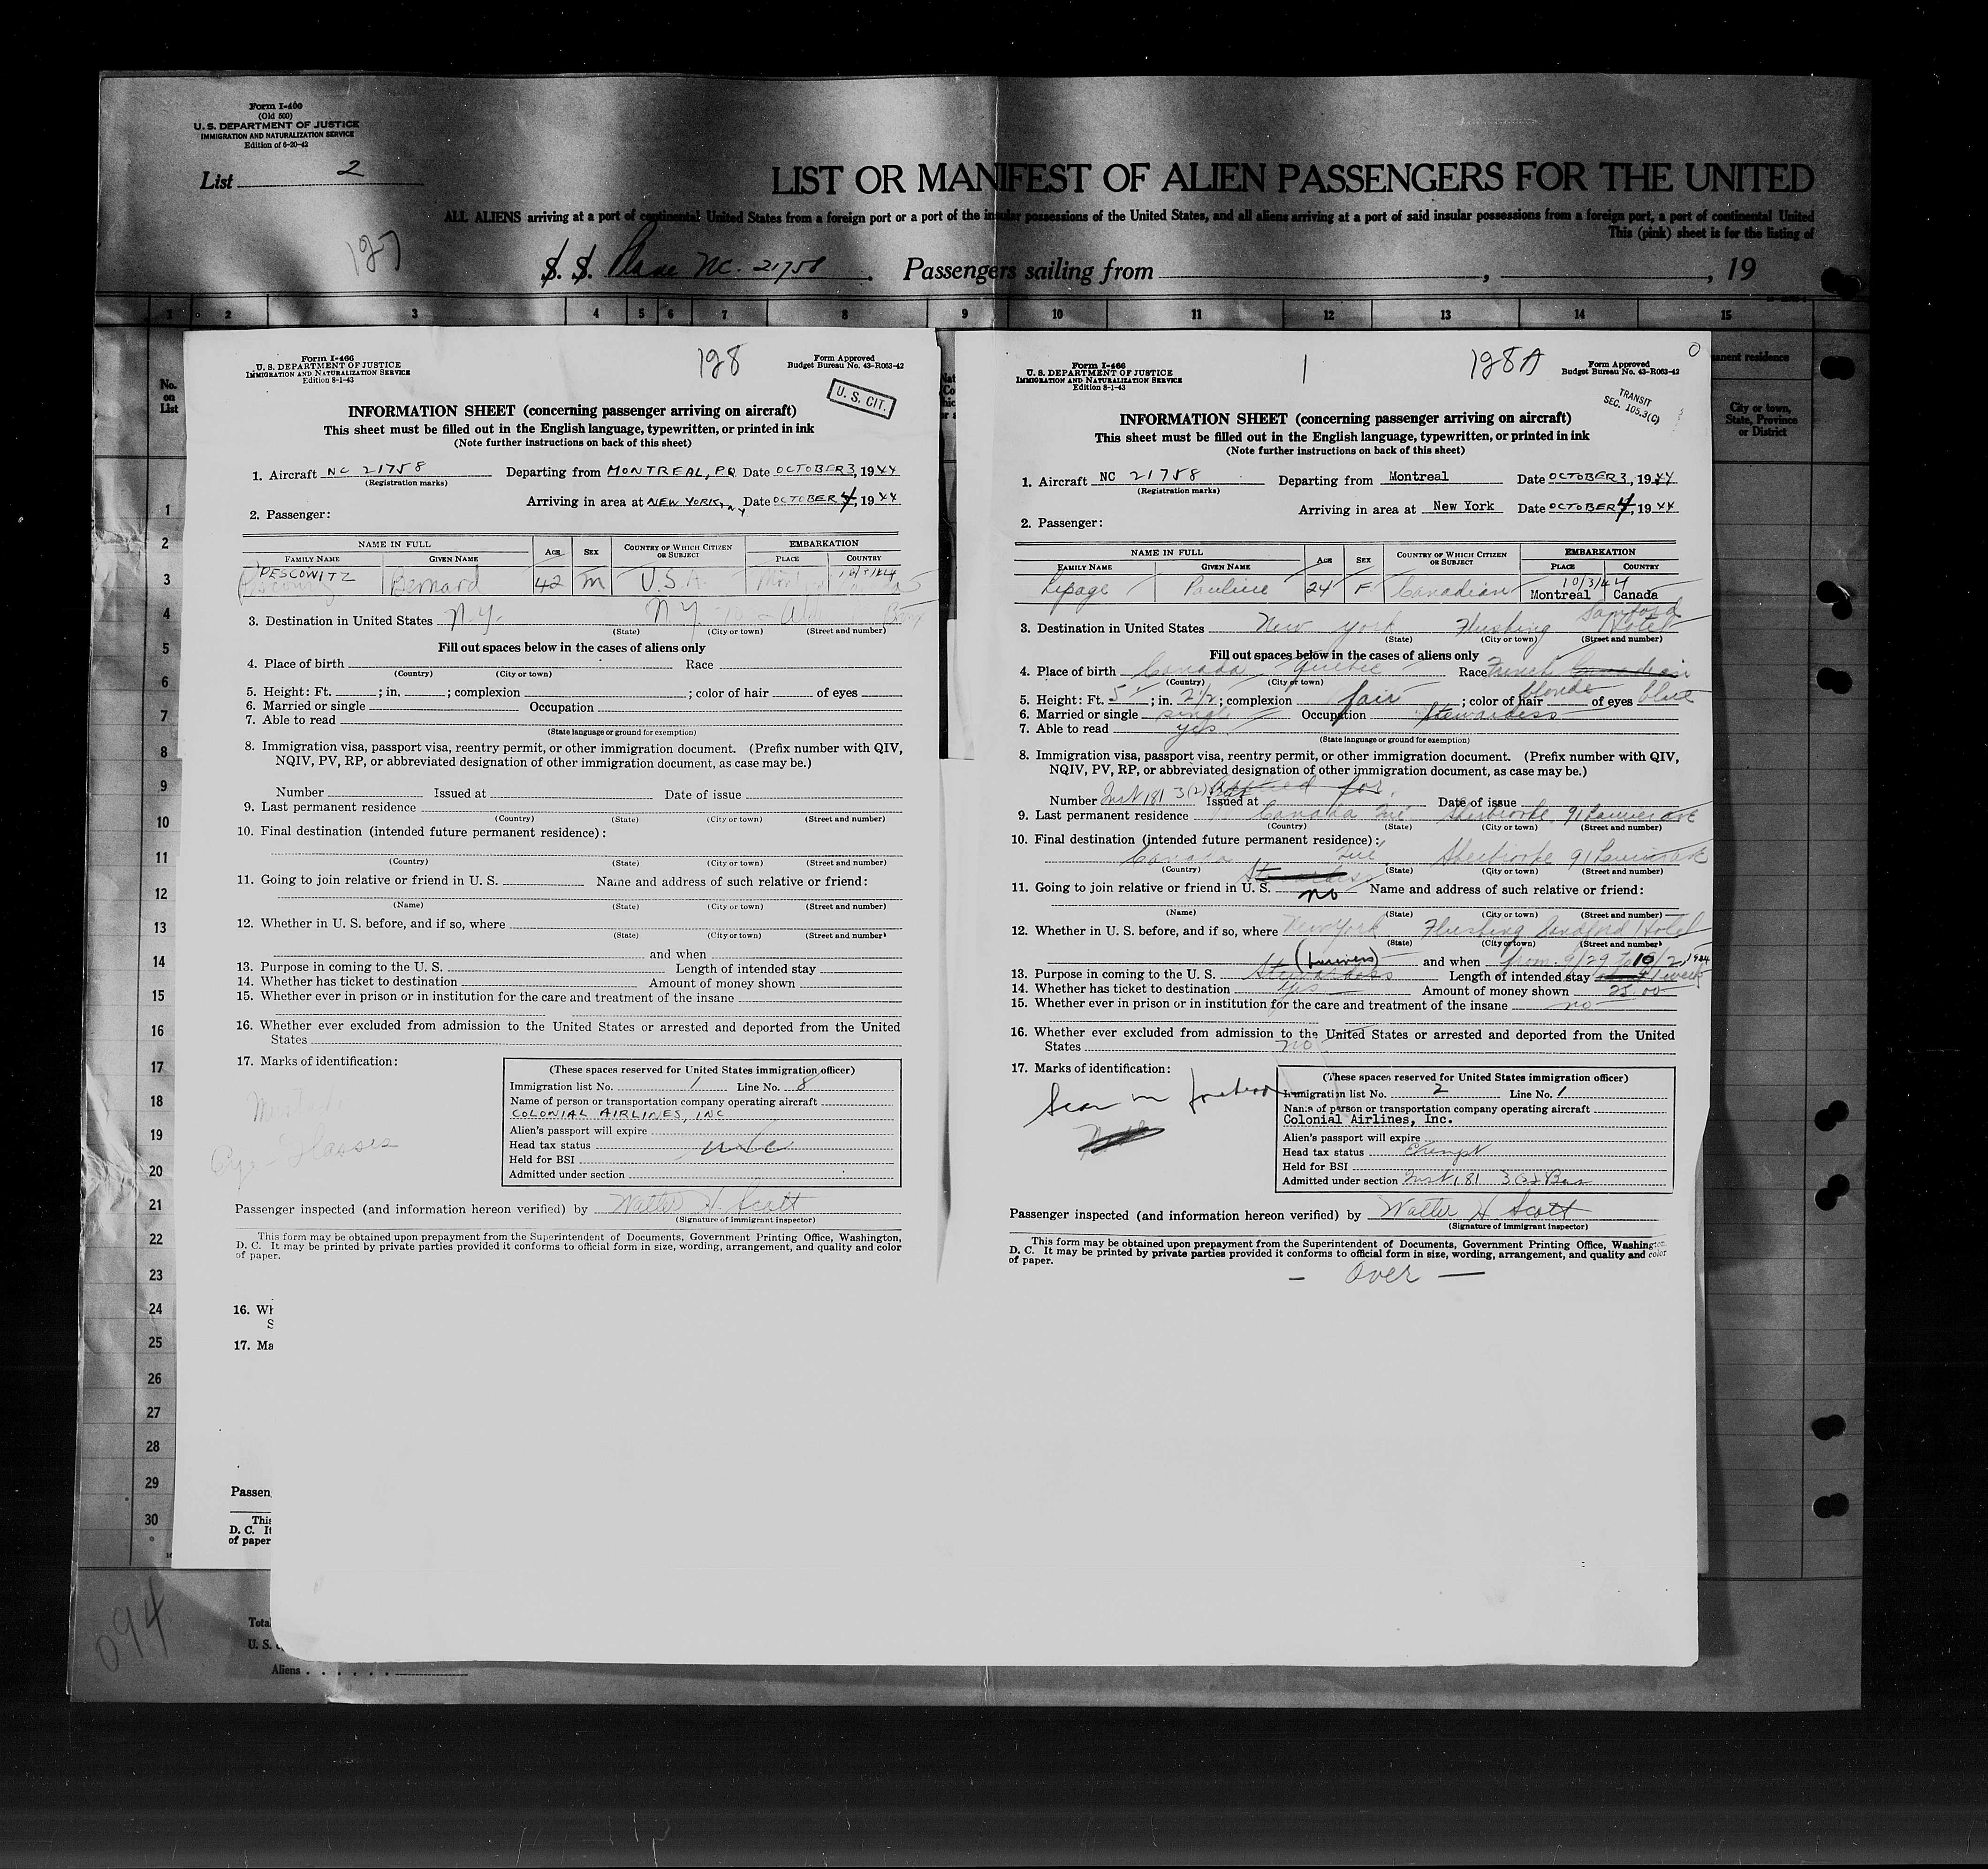 Form I-400
(Old 500)
U. S. DEPARTMENT OF JUSTICE
IMMIGRATION AND NATURALIZATION SERVICE
Edition of 6-20-42
List 2
LIST OR MANIFEST OF ALIEN PASSENGERS FOR THE UNITED
ALL ALIENS arriving at a port of continental United States from a foreign port or a port of the insular possessions of the United States, and all aliens arriving at a port of said insular possessions from a foreign port, a port of continental United
This (pink) sheet is for the listing of
127
S. S. Plane NC. 21758. Passengers sailing from , , 19
1 2 3 4 5 6 7 8 9 10 11 12 13 14 15
No. on List
anent residence
City or town, State, Province or District
1
2
3
4
5
6
7
8
9
10
11
12
13
14
15
16
17
18
19
20
21
22
23
24
25
26
27
28
29
30
Form I-466
U. S. DEPARTMENT OF JUSTICE
IMMIGRATION AND NATURALIZATION SERVICE
Edition 8-1-43
128
Form Approved
Budget Bureau No. 43-R063-42
U. S. CIT.
INFORMATION SHEET (concerning passenger arriving on aircraft)
This sheet must be filled out in the English language, typewritten, or printed in ink
(Note further instructions on back of this sheet)
1. Aircraft NC 21758 Departing from MONTREAL, PQ Date OCTOBER 3, 1944
(Registration marks)
Arriving in area at NEW YORK, NY Date OCTOBER 4, 1944
2. Passenger:
NAME IN FULL AGE SEX COUNTRY OF WHICH CITIZEN OR SUBJECT EMBARKATION
FAMILY NAME GIVEN NAME PLACE COUNTRY
PESCOWITZ Bernard 42 M U.S.A. 10/3/44
3. Destination in United States N.Y. N.Y.
(State) (City or town) (Street and number)
Fill out spaces below in the cases of aliens only
4. Place of birth Race
(Country) (City or town)
5. Height: Ft. ; in. ; complexion ; color of hair of eyes
6. Married or single Occupation
7. Able to read
(State language or ground for exemption)
8. Immigration visa, passport visa, reentry permit, or other immigration document. (Prefix number with QIV,
NQIV, PV, RP, or abbreviated designation of other immigration document, as case may be.)
Number Issued at Date of issue
9. Last permanent residence
(Country) (State) (City or town) (Street and number)
10. Final destination (intended future permanent residence):
(Country) (State) (City or town) (Street and number)
11. Going to join relative or friend in U. S. Name and address of such relative or friend:
(Name) (State) (City or town) (Street and number)
12. Whether in U. S. before, and if so, where
(State) (City or town) (Street and number)
and when
13. Purpose in coming to the U. S. Length of intended stay
14. Whether has ticket to destination Amount of money shown
15. Whether ever in prison or in institution for the care and treatment of the insane
16. Whether ever excluded from admission to the United States or arrested and deported from the United
States
17. Marks of identification:
Eye-Glasses
(These spaces reserved for United States immigration officer)
Immigration list No. 1 Line No. 8
Name of person or transportation company operating aircraft
COLONIAL AIRLINES, INC
Alien's passport will expire
Head tax status USC
Held for BSI
Admitted under section
Passenger inspected (and information hereon verified) by Walter H. Scott
(Signature of immigrant inspector)
This form may be obtained upon prepayment from the Superintendent of Documents, Government Printing Office, Washington,
D. C. It may be printed by private parties provided it conforms to official form in size, wording, arrangement, and quality and color
of paper.
16. Wh
S
17. Ma
Passen
This
D. C. It
of paper
094
Total
U. S.
Aliens
Form I-466
U. S. DEPARTMENT OF JUSTICE
IMMIGRATION AND NATURALIZATION SERVICE
Edition 8-1-43
1
128A
Form Approved
Budget Bureau No. 43-R063-42
TRANSIT
SEC. 105.3(C)
INFORMATION SHEET (concerning passenger arriving on aircraft)
This sheet must be filled out in the English language, typewritten, or printed in ink
(Note further instructions on back of this sheet)
1. Aircraft NC 21758 Departing from Montreal Date OCTOBER 3, 1944
(Registration marks)
Arriving in area at New York Date OCTOBER 4, 1944
2. Passenger:
NAME IN FULL AGE SEX COUNTRY OF WHICH CITIZEN OR SUBJECT EMBARKATION
FAMILY NAME GIVEN NAME PLACE COUNTRY
Lepage Pauline 24 F Canadian 10/3/44 Montreal Canada
3. Destination in United States New York Flushing Sanford Hotel
(State) (City or town) (Street and number)
Fill out spaces below in the cases of aliens only
4. Place of birth Canada Quebec Race French Canadian
(Country) (City or town)
5. Height: Ft. 5 ; in. 2 1/2 ; complexion fair ; color of hair blonde of eyes blue
6. Married or single single Occupation Stewardess
7. Able to read yes
(State language or ground for exemption)
8. Immigration visa, passport visa, reentry permit, or other immigration document. (Prefix number with QIV,
NQIV, PV, RP, or abbreviated designation of other immigration document, as case may be.)
Number Inst 181 3(2) applied for. Issued at Date of issue
9. Last permanent residence Canada Que Sherbrooke 91 Laurier ave
(Country) (State) (City or town) (Street and number)
10. Final destination (intended future permanent residence):
Canada Que. Sherbrooke 91 Laurier ave
(Country) (State) (City or town) (Street and number)
11. Going to join relative or friend in U. S. Stewardess no Name and address of such relative or friend:
(Name) (State) (City or town) (Street and number)
12. Whether in U. S. before, and if so, where New York Flushing Sandford Hotel
(State) (City or town) (Street and number)
and when from 9/29 to 10/2, 1944
13. Purpose in coming to the U. S. Stewardess Length of intended stay 1 week
14. Whether has ticket to destination yes Amount of money shown 25.00
15. Whether ever in prison or in institution for the care and treatment of the insane no
16. Whether ever excluded from admission to the United States or arrested and deported from the United
States no
17. Marks of identification:
Scar on forehead
(These spaces reserved for United States immigration officer)
Immigration list No. 2 Line No. 1
Name of person or transportation company operating aircraft
Colonial Airlines, Inc.
Alien's passport will expire
Head tax status Exempt
Held for BSI
Admitted under section Inst 181 3(2) Bus
Passenger inspected (and information hereon verified) by Walter H. Scott
(Signature of immigrant inspector)
This form may be obtained upon prepayment from the Superintendent of Documents, Government Printing Office, Washington,
D. C. It may be printed by private parties provided it conforms to official form in size, wording, arrangement, and quality and color
of paper.
- Over -